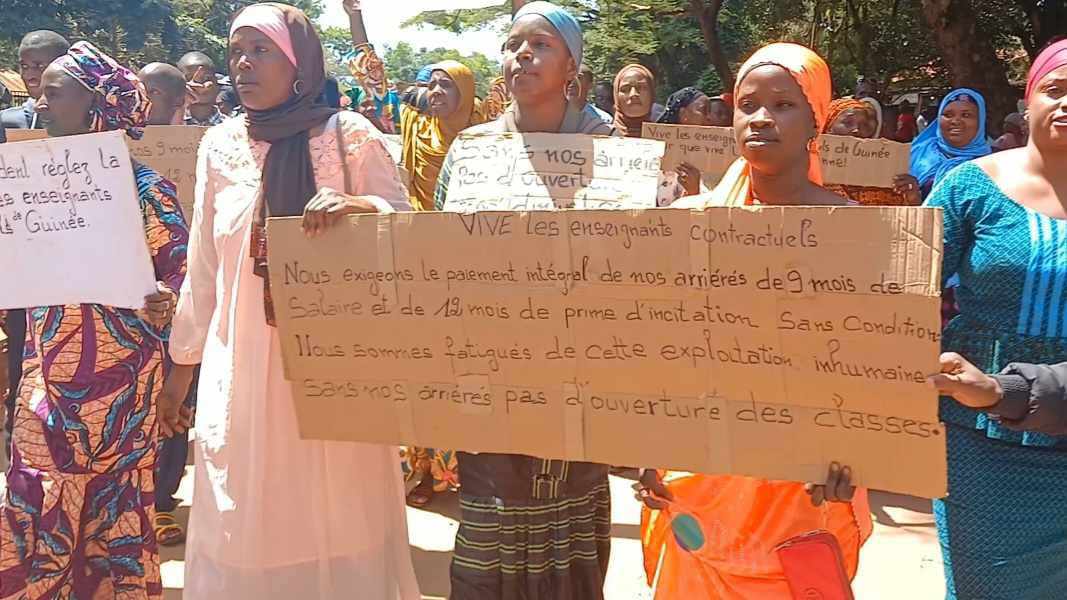 dent réglez la
es enseignants
ls de Guinée.
9 mois
Sans nos arriérés
Pas d'ouverture
Vive les
que vive
ds de Guinée
VIVE les enseignants contractuels
Nous exigeons le paiement intégral de nos arriérés de 9 mois de
Salaire et de 12 mois de prime d'incitation Sans Condition
Nous sommes fatigués de cette exploitation inhumaine
Sans nos arriérés pas d'ouverture des classes.